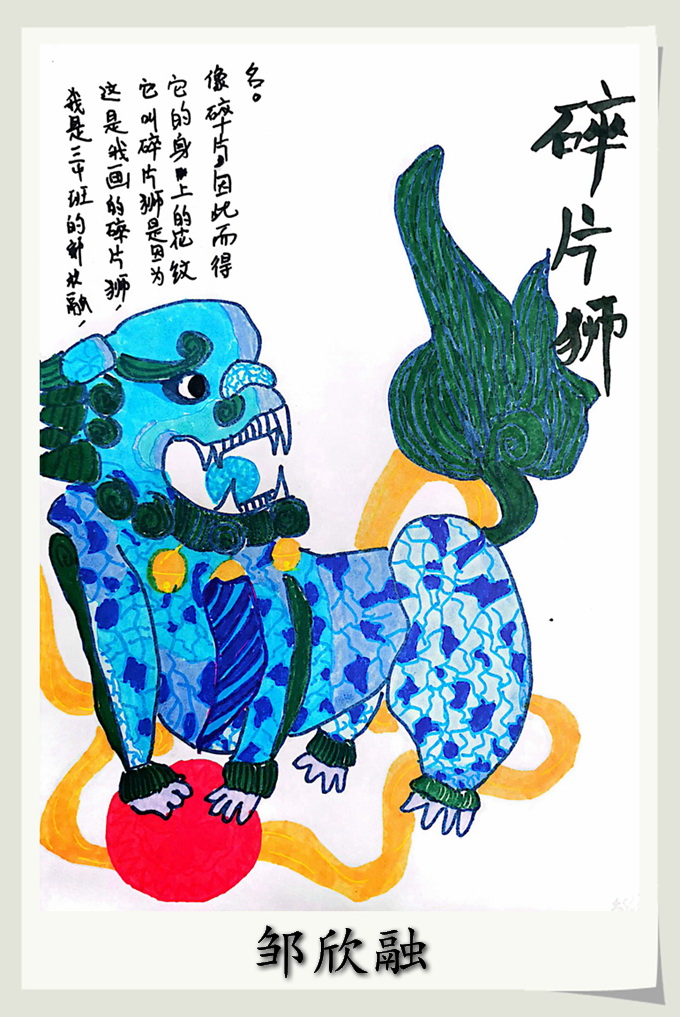 碎片狮
我是三中班的邹欣融，
这是我画的碎片狮，
它叫碎片狮是因为
它的身上的花纹
像碎片，因此而得
名。
邹欣融